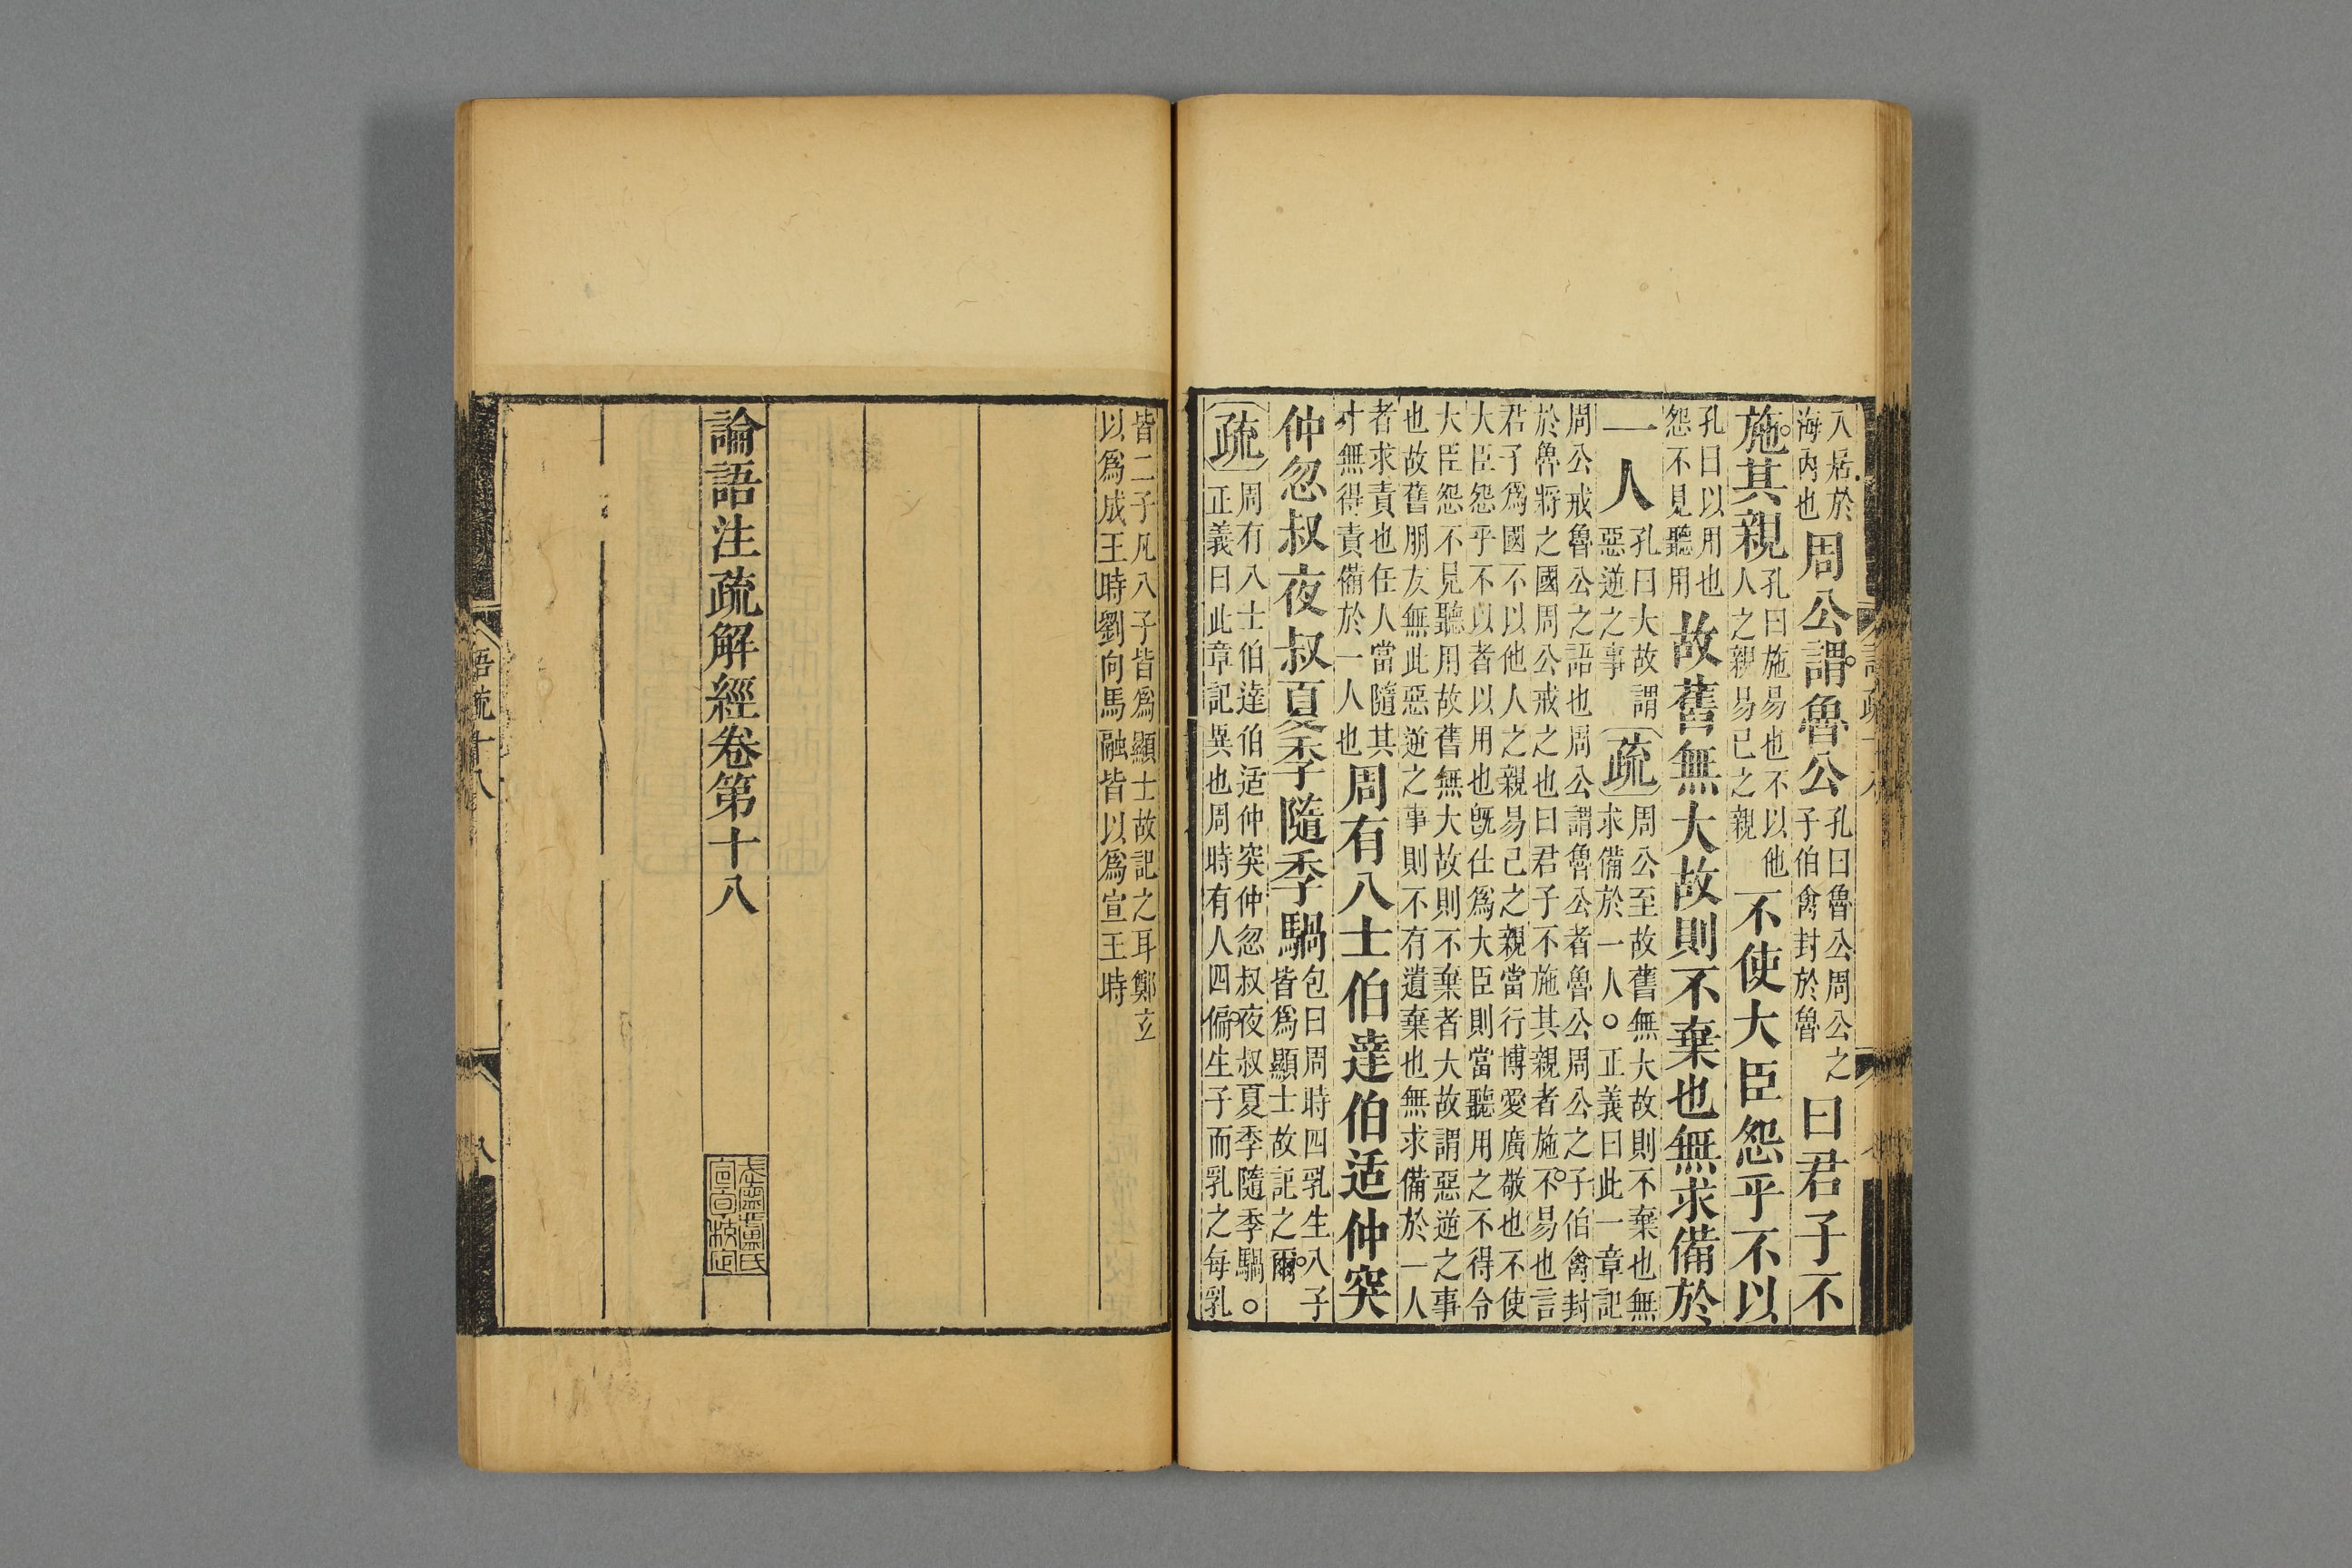 入居於
海内也
周公謂魯公
孔曰魯公周公之
子伯禽封於魯
曰君子不
施其親
孔曰施易也不以他
人之親易己之親
不使大臣怨乎不以
孔曰以用也
怨不見聽用
故舊無大故則不棄也無求備於
一人
孔曰大故謂
惡逆之事
疏
周公至故舊無大故則不棄也無
求備於一人○正義曰此一章記
周公戒魯公之語也周公謂魯公者魯公周公之子伯禽封
於魯將之國周公戒之也曰君子不施其親者施不易也言
君子爲國不以他人之親易己之親當行博愛廣敬也不使
大臣怨乎不以者以用也旣仕爲大臣則當聽用之不得令
大臣怨不見聽用故舊無大故則不棄者大故謂惡逆之事
也故舊朋友無此惡逆之事則不有遺棄也無求備於一人
者求責也任人當隨其
才無得責備於一人也
周有八士伯達伯适仲突
仲忽叔夜叔夏季隨季騧
包曰周時四乳生八子
皆爲顯士故記之爾
疏
周有八士伯達伯适仲突仲忽叔夜叔夏季隨季騧○
正義曰此章記異也周時有人四偏生子而乳之每乳
皆二子凡八子皆爲顯士故記之耳鄭玄
以爲成王時劉向馬融皆以爲宣王時
論語注疏解經卷第十八
語疏十八
八